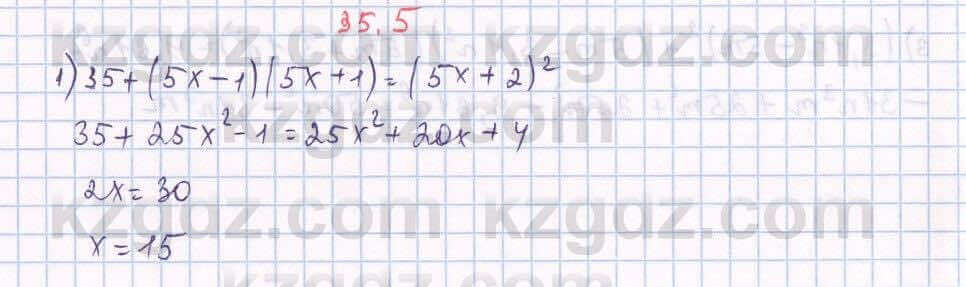 35.5
1) 35+(5x-1)(5x+1)=(5x+2)²
35+25x²-1=25x²+20x+4
2x=30
x=15
kzgdz.com
kzgdz.com kzgdz.com